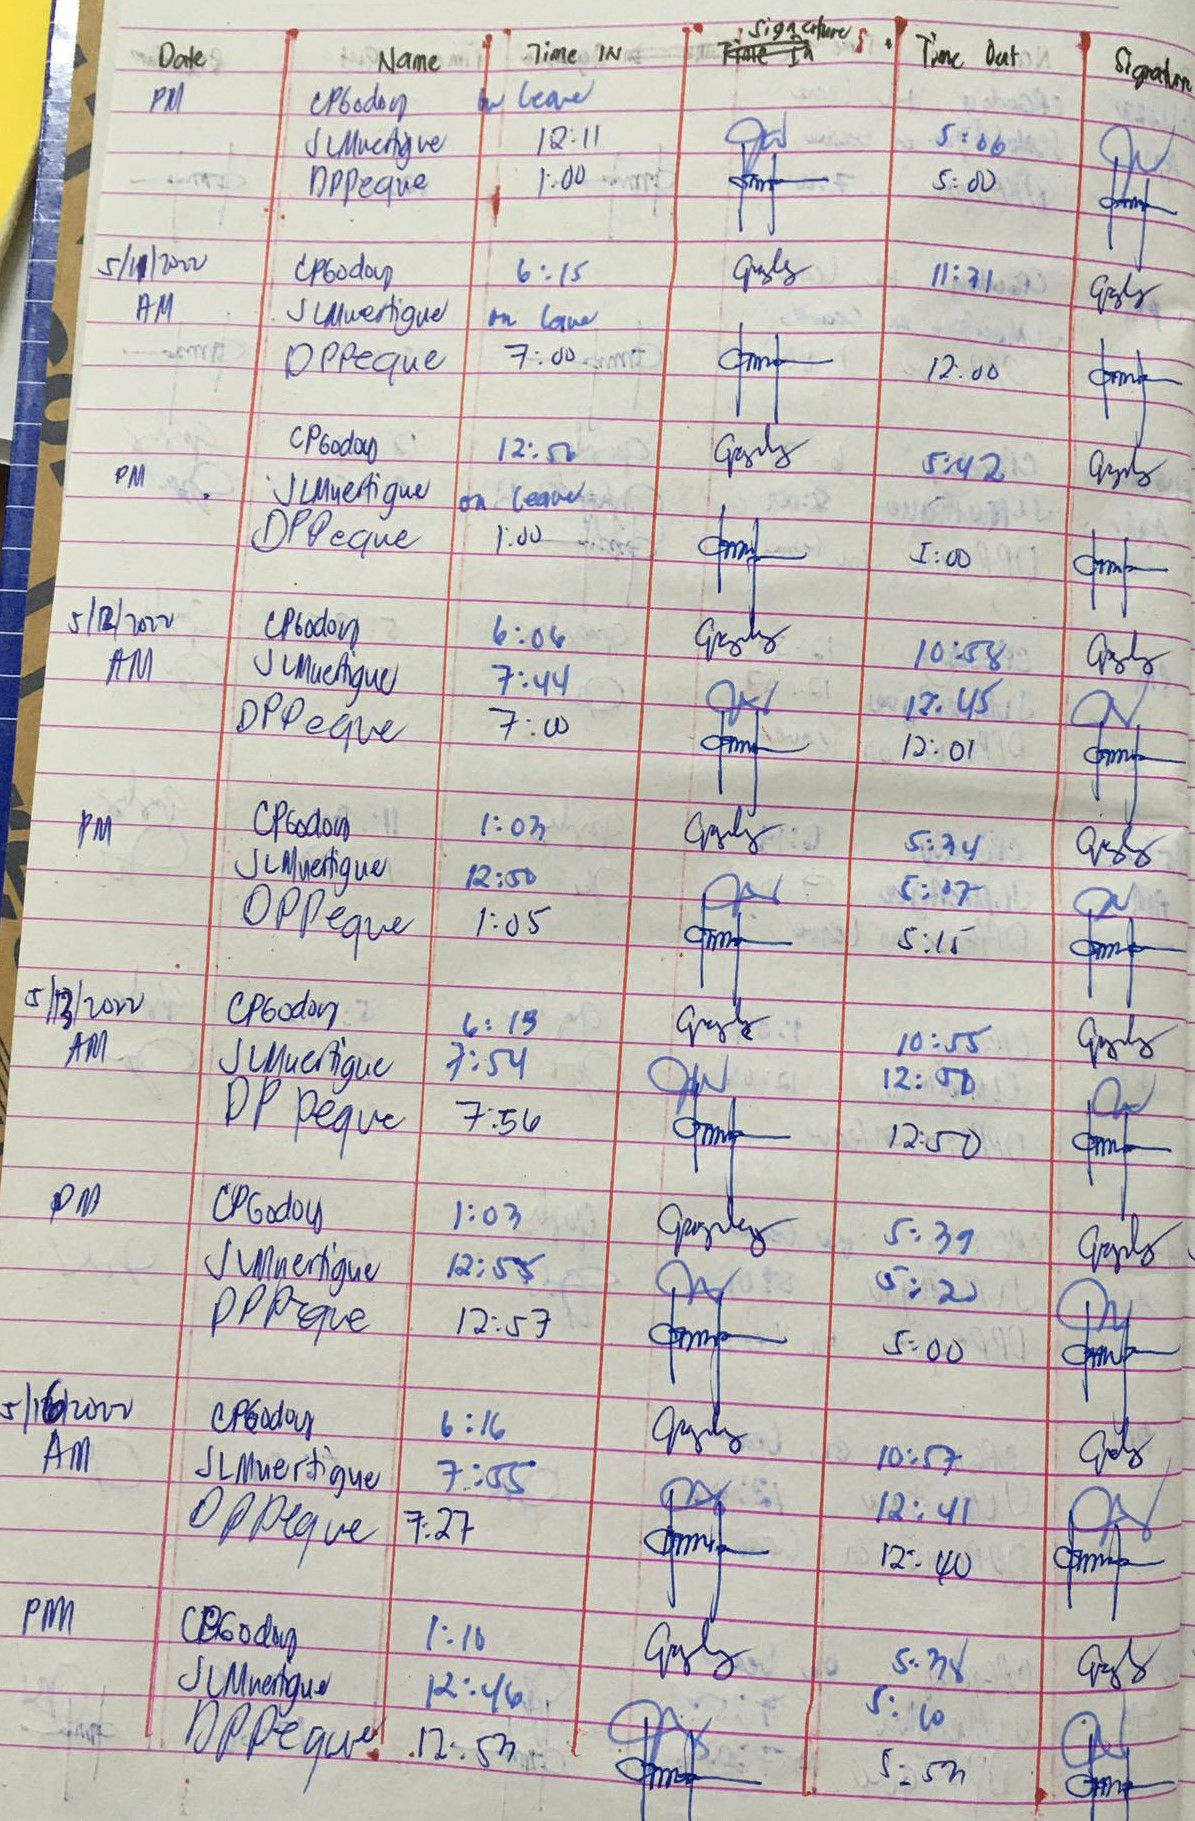 Date Name Time IN Signature Time In Time Out Signature
PM CPGodoy on leave
JLMuertigue 12:11 5:06
DPPeque 1:00 5:00
5/11/2022 CPGodoy 6:15 11:31
AM JLMuertigue on leave
DPPeque 7:00 12:00
CPGodoy 12:50 5:42
PM JLMuertigue on leave
DPPeque 1:00 5:00
5/12/2022 CPGodoy 6:06 10:58
AM JLMuertigue 7:44 12:45
DPPeque 7:00 12:01
PM CPGodoy 1:03 5:34
JLMuertigue 12:50 5:07
DPPeque 1:05 5:15
5/13/2022 CPGodoy 6:15 10:55
AM JLMuertigue 7:54 12:50
DPPeque 7:56 12:50
PM CPGodoy 1:03 5:39
JLMuertigue 12:55 5:20
DPPeque 12:57 5:00
5/16/2022 CPGodoy 6:16 10:57
AM JLMuertigue 7:55 12:41
DPPeque 7:27 12:40
PM CPGodoy 1:10 5:38
JLMuertigue 12:46 5:10
DPPeque 12:53 5:53